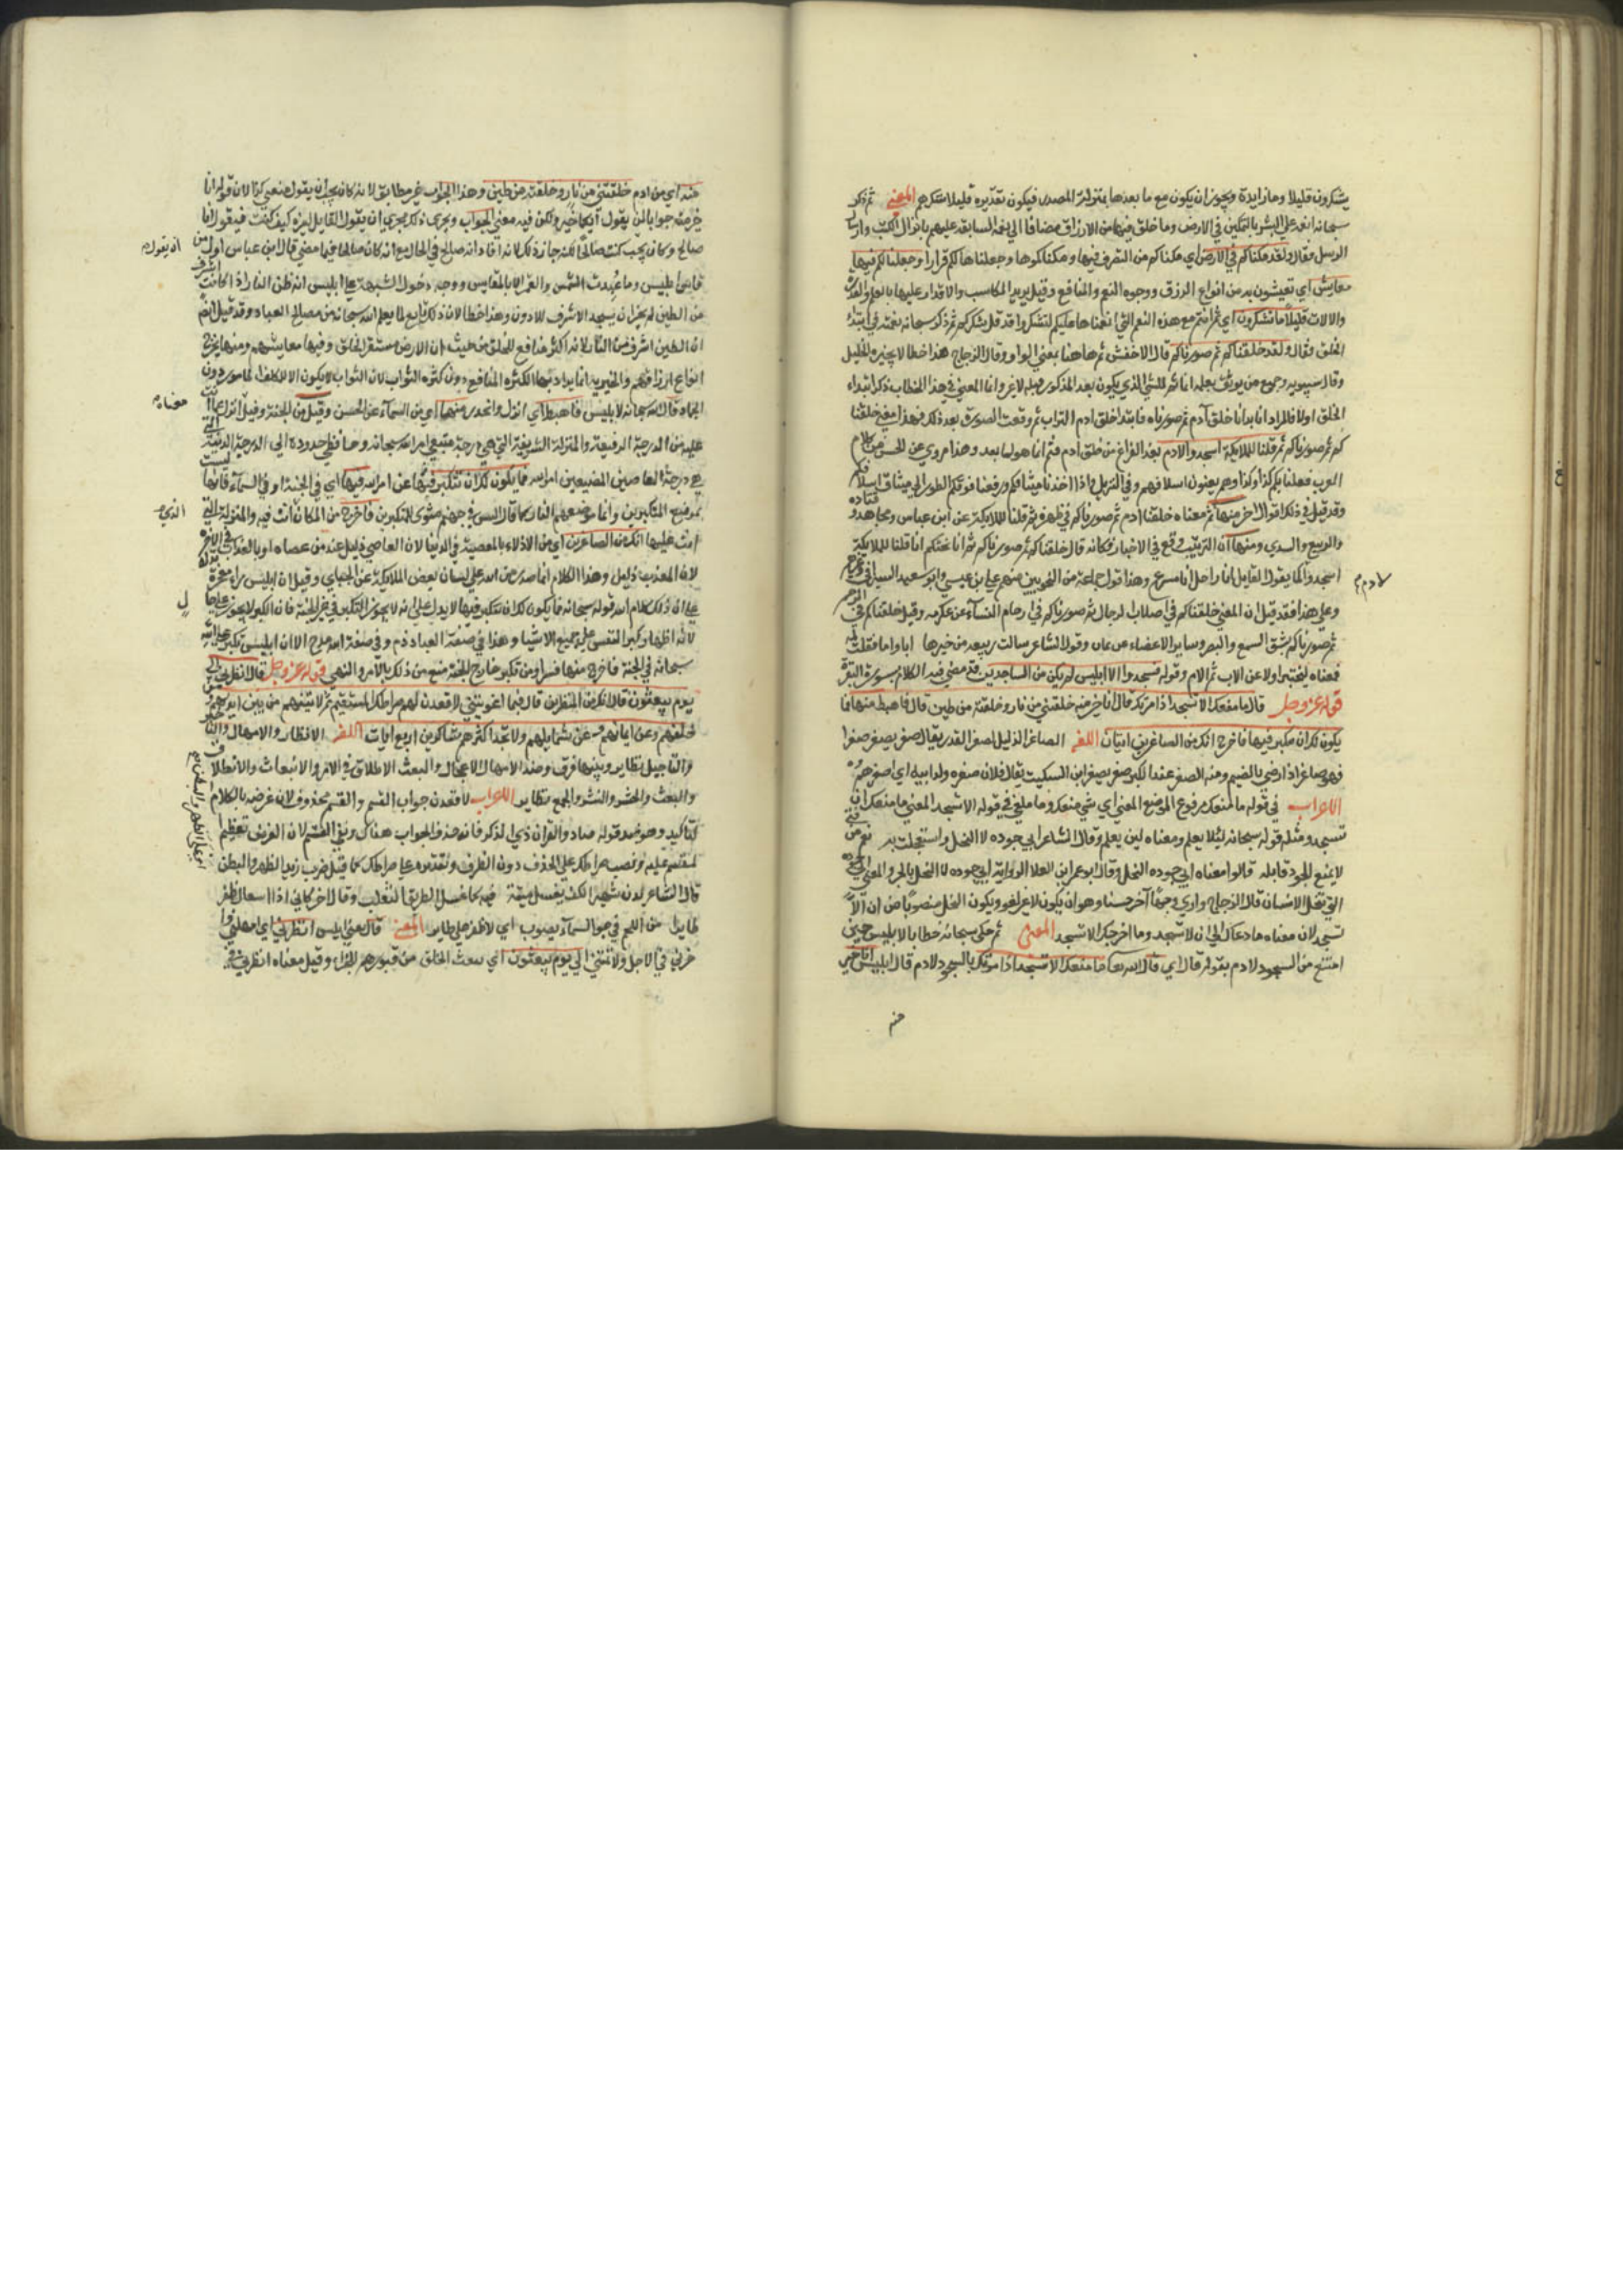 يشكرون قليلا وما زايدة ويجوز ان يكون مع ما بعدها بمنزلة المصدر فيكون تقديره قليلا شكركم المعنى ثم ذكر
سبحانه نعمه على البشر بالتمكين في الارض وما خلق فيها من الارزاق مضافا الى نعمه السابقة عليهم بانزال الكتب وارسال
الرسل فقال ولقد مكناكم في الارض اي مكناكم من التصرف فيها وملكناكموها وجعلناها لكم قرارا وجعلنا لكم فيها
معايش اي تعيشون به من انواع الرزق ووجوه النعم والمنافع وقيل يريد المكاسب والاقدار عليها بالعلم والقدرة
والالات قليلا ما تشكرون اي ثم انتم مع هذه النعم التي انعمناها عليكم لتشكروا قد قل شكركم ثم ذكر سبحانه نعمته في ابتداء
الخلق فقال ولقد خلقناكم ثم صورناكم قال الاخفش ثم هاهنا بمعنى الواو وقال الزجاج هذا خطا لا يجيزه الخليل
وقال سيبويه وجميع من يوثق بعلمه انما ثم للشي الذي يكون بعد المذكور قبله لا غير وانما المعنى في هذا الخطاب ذكر ابتداء
الخلق اولا فالمراد انا بدانا خلق آدم ثم صورناه فابتدا خلق ادم التراب ثم وقعت الصورة بعد ذلك فهذا معنى خلقنا
كم ثم صورناكم ثم قلنا للملايكة اسجدوا لادم بعد الفراغ من خلق ادم فثم انما هو لما بعد وهذا مروي عن الحسن من كلام
العرب فعلنا بكم كذا وكذا وهم يعنون اسلافهم وفي التنزيل واذ اخذنا ميثاقكم ورفعنا فوقكم الطور اي ميثاق اسلافكم
وقد قيل في ذلك اقوال اخر منها ثم معناه خلقنا ادم ثم صورناكم في ظهره ثم قلنا للملايكة عن ابن عباس ومجاهد و قتاده
والربيع والسدي ومنها ان الترتيب وقع في الاخبار فكانه قال خلقناكم ثم صورناكم ثم انا نخبركم انا قلنا للملايكة
اسجدوا لادم كما يقول القايل انا راحل انا مسرع وهذا قول جماعة من النحويين منهم علي بن عيسى وابو سعيد السيرافي وغيرهم
وعلى هذا فقد قيل ان المعنى خلقناكم في اصلاب الرجال ثم صورناكم في ارحام النسآء عن عكرمه وقيل خلقناكم في الرحم
ثم صورناكم بشق السمع والبصر وساير الاعضاء عن يمان وقول الشاعر سالت ربيعه من خيرها ابا واما فقلت لمه
فمعناه ليختبر اولا عن الاب ثم الام وقوله فسجدوا الا ابليس لم يكن من الساجدين قد مضى فيه الكلام بسورة البقرة
قوله عز وجل قال ما منعك الا تسجد اذ امرتك قال انا خير منه خلقتني من نار وخلقته من طين قال فاهبط منها فما
يكون لك ان تتكبر فيها فاخرج انك من الصاغرين ايتان اللغة الصاغر الذليل لصغر القدر يقال صغر يصغر صغرا
فهو صاغر اذا رضي بالضيم ومنه الصغر عند الكبر صغر يصغر ابن السكيت يقال فلان صغره ولد ابيه اي اصغرهم
الاعراب في قوله ما منعك مرفوع الموضع المعنى اي شي منعك وما ملغى في قوله الا تسجد المعنى ما منعك ان
تسجد ومثله قوله سبحانه ليلا يعلم ومعناه لين يعلم وقال الشاعر ابى جوده لا البخل واستعجلت به نعم من فتى
لا يمنع الجود قاتله قالوا معناه ابى جوده البخل وقال ابو عمرو ابن العلا الرواية ابى جوده لا البخل بالجر والمعنى
التي تبخل الانسان قال الزجاج وارى وجها آخر حسنا وهو ان يكون لا غير لغو ويكون البخل منصوبا
تسجد لان معناه ما دعاك الى ان لا تسجد وما احوجك الا تسجد المعنى ثم حكى سبحانه خطابا لابليس حين
امتنع من السجود لادم بقوله قال اي قال الله تعالى ما منعك الا تسجد اذ امرتك بالسجود لادم قال ابليس انا خير
منه
منه اي من ادم خلقتني من نار وخلقته من طين وهذا الجواب غير مطابق لانه كان يجب ان يقول منعني كذا لان قوله انا
خير منه جواب لمن يقول ايكما خير ولكن فيه معنى الجواب ويجري ذلك مجرى ان يقول القايل لغيره كيف كنت فيقول انا
صالح وكان يجب ان يقول كنت صالحا لكنه جاز ذلك لانه افاد انه صالح في الحال مع انه كان صالحا فيما مضى قال ابن عباس اول من
قاس ابليس وما عبدت الشمس والقمر الا بالمقاييس ووجه دخول الشبهة على ابليس انه ظن النار اذا كانت اشرف
من الطين لم يجز ان يسجد الاشرف للادون وهذا خطا لان ذلك تابع لما يعلم الله سبحانه من مصالح العباد وقد قيل ايضا
ان الطين اشرف من النار لانه اكثر منافع للخلق من حيث ان الارض مستقر الخلق وفيها معايشهم ومنها يخرج
انواع ارزاقهم والخيرية انما يراد بها كثرة المنافع دون كثرة الثواب لان الثواب لا يكون الا للمكلف المامور دون
الجماد قال الله سبحانه لابليس فاهبط اي انزل وانحدر منها اي من السمآء عن الحسن وقيل من الجنة وقيل معناه انزل عما انت
عليه من الدرجة الرفيعة والمنزلة الشريفة التي هي درجة متبعي امر الله سبحانه وحافظي حدوده الى الدرجة الدنية التي
هي درجة العاصين المضيعين امر الله فما يكون لك ان تتكبر فيها عن امر الله فيها اي في الجنة او في السمآء فانها ليست
بموضع المتكبرين وانما موضعهم النار كما قال اليس في جهنم مثوى للمتكبرين فاخرج من المكان الذي انت فيه والمنزلة التي
انت عليها انك من الصاغرين اي من الاذلاء بالمعصية في الدنيا لان العاصي ذليل عند من عصاه او بالعذاب في الاخرة
لان المعذب ذليل وهذا الكلام انما صدر من الله على لسان بعض الملايكة عن الجبائي وقيل ان ابليس راى معجزة
تدل على ان ذلك كلام الله قوله سبحانه فما يكون لك ان تتكبر فيها لا يدل على انه لا يجوز التكبر في غير الجنة فان الكبر لا يجوز على حال
لانه اظهار كبر النفس على جميع الاشيا وهذا في صفة العباد ذم وفي صفة الله مدح الا ان ابليس تكبر على الله
سبحانه في الجنة فاخرج منها قسرا ومن تكبر خارج الجنة منع من ذلك بالامر والنهي قوله عز وجل قال انظرني الى
يوم يبعثون قال انك من المنظرين قال فبما اغويتني لاقعدن لهم صراطك المستقيم ثم لاتينهم من بين ايديهم ومن
خلفهم وعن ايمانهم وعن شمايلهم ولا تجد اكثرهم شاكرين اربع ايات اللغة الانظار والامهال والتاخير
والتاجيل نظاير وبينها فرق وضد الامهال الاعجال والبعث الاطلاق في الامر والانبعاث والانطلاق
والبعث والحشر والنشر والجمع نظاير الاعراب لاقعدن جواب القسم والقسم محذوف لان غرضه بالكلام
التاكيد وهو ضد قوله صاد والقران ذي الذكر فانه حذف الجواب هناك وبقي القسم لان الغرض تعظيم
المقسم عليه ونصب صراطك على الحذف دون الظرف وتقديره على صراطك كما قيل ضرب زيد الظهر والبطن
اي على الظهر والبطن
قال الشاعر لدن فيه كما عسل الطريق الثعلب وقال اخر كاني اذا اسعى لاظفر
طايرا من النجم في جو السمآء يصوب اي لاظفر على طاير المعنى قال يعني ابليس انظرني اي امهلني و
اخرني في الاجل ولا تمتني الى يوم يبعثون اي يبعث الخلق من قبورهم للجزاء وقيل معناه انظرني في